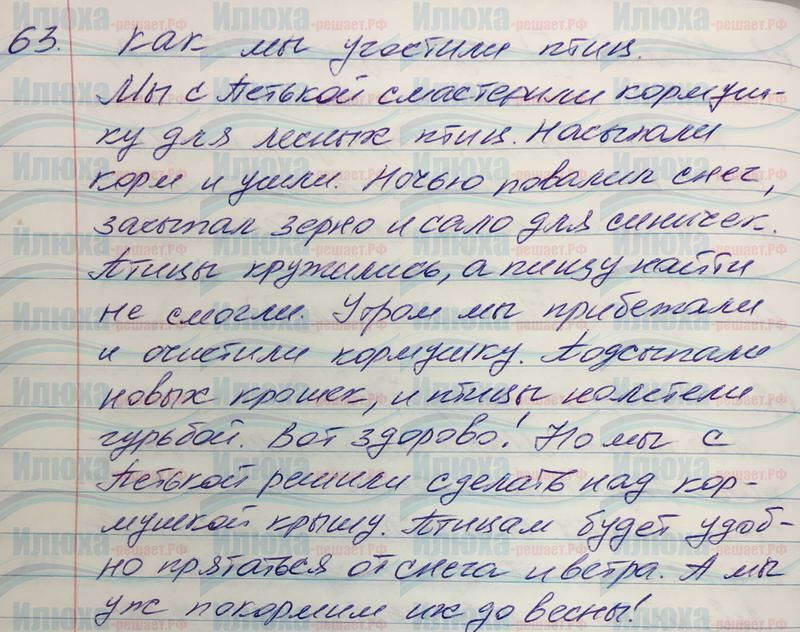 63. Как мы угостили птиц.
Мы с Петькой смастерили кормуш-
ку для лесных птиц. Насыпали
корм и ушли. Ночью повалил снег,
засыпал зерно и сало для синичек.
Птицы кружились, а пищу найти
не смогли. Утром мы прибежали
и очистили кормушку. Подсыпали
новых крошек, и птицы налетели
гурьбой. Вот здорово! Но мы с
Петькой решили сделать над кор-
мушкой крышу. Птицам будет удоб-
но прятаться от снега и ветра. А мы
уж покормим их до весны!